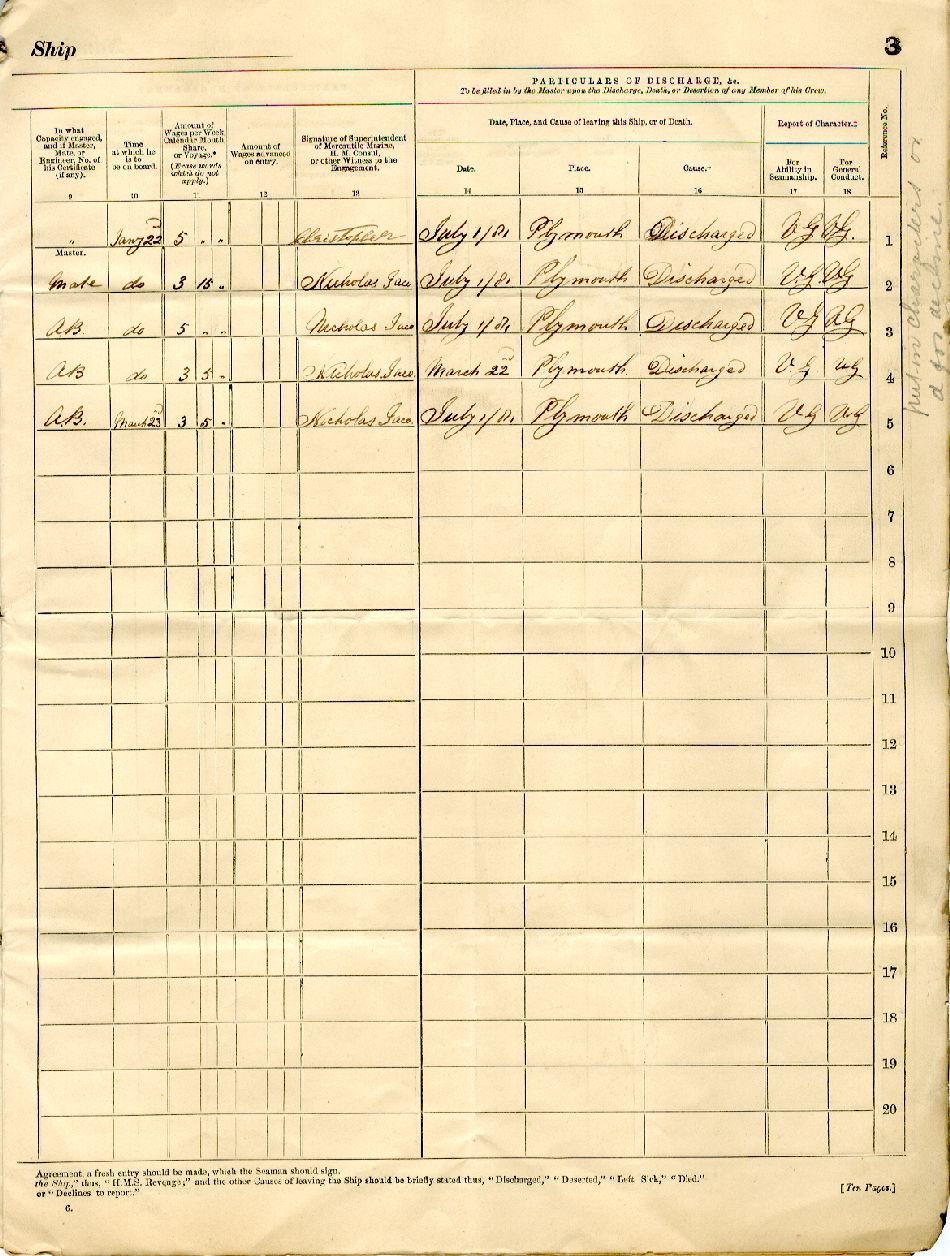 Ship
3
PARTICULARS OF DISCHARGE, &c.
To be filled in by the Master upon the Discharge, Death, or Desertion of any Member of his Crew.
In what Capacity engaged, and if Master, Mate, or Engineer, No. of his Certificate (if any).
Time at which he is to be on board.
Amount of Wages per Week, Calendar Month, Share, or Voyage.*
Amount of Wages advanced on entry.
Signature of Superintendent of Mercantile Marine, H. M. Consul, or other Witness to the Engagement.
Date, Place, and Cause of leaving this Ship, or of Death.
Date.
Place.
Cause.
Report of Character.
For Ability in Seamanship.
For General Conduct.
Reference No.
9 10 11 12 13 14 15 16 17 18
" Jany 22nd 5 " " July 1/81 Plymouth Discharged V.G V.G. 1
Master.
Mate do 3 15 " Nicholas July 1/81 Plymouth Discharged V.G. V.G 2
AB. do 5 " " Nicholas July 1/81 Plymouth Discharged V.G V.G 3
AB do 3 5 " Nicholas March 22nd Plymouth Discharged V.G. V.G 4
AB. March 23rd 3 5 " Nicholas July 1/81 Plymouth Discharged V.G V.G 5
6
7
8
9
10
11
12
13
14
15
16
17
18
19
20
put in characters or
Agreement, a fresh entry should be made, which the Seaman should sign.
the Ship," thus, "H.M.S. Revenge;" and the other Causes of leaving the Ship should be briefly stated thus, "Discharged," "Deserted," "Left Sick," "Died."
or "Declines to report."
[Ten Pages.]